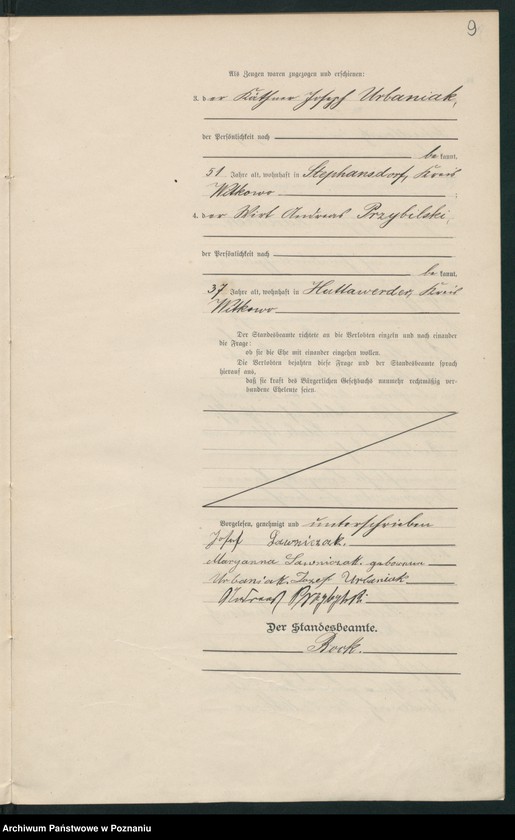 9
Als Zeugen waren zugezogen und erschienen:
3. der Käthner Joseph Urbaniak,
der Persönlichkeit nach
bekannt,
51 Jahre alt, wohnhaft in Stephansdorf, Kreis
Witkowo ;
4. der Wirt Andreas Przybilski,
der Persönlichkeit nach
bekannt,
37 Jahre alt, wohnhaft in Huttawerder, Kreis
Witkowo
Der Standesbeamte richtete an die Verlobten einzeln und nach einander
die Frage:
ob sie die Ehe mit einander eingehen wollen.
Die Verlobten bejahten diese Frage und der Standesbeamte sprach
hierauf aus,
daß sie kraft des Bürgerlichen Gesetzbuchs nunmehr rechtmäßig ver-
bundene Eheleute seien.
Vorgelesen, genehmigt und unterschrieben
Josef Ławniczak.
Maryanna Lawniczak geborenen
Urbaniak. Jozef Urbaniak
Andreas Przybylski
Der Standesbeamte.
Book.
Archiwum Państwowe w Poznaniu